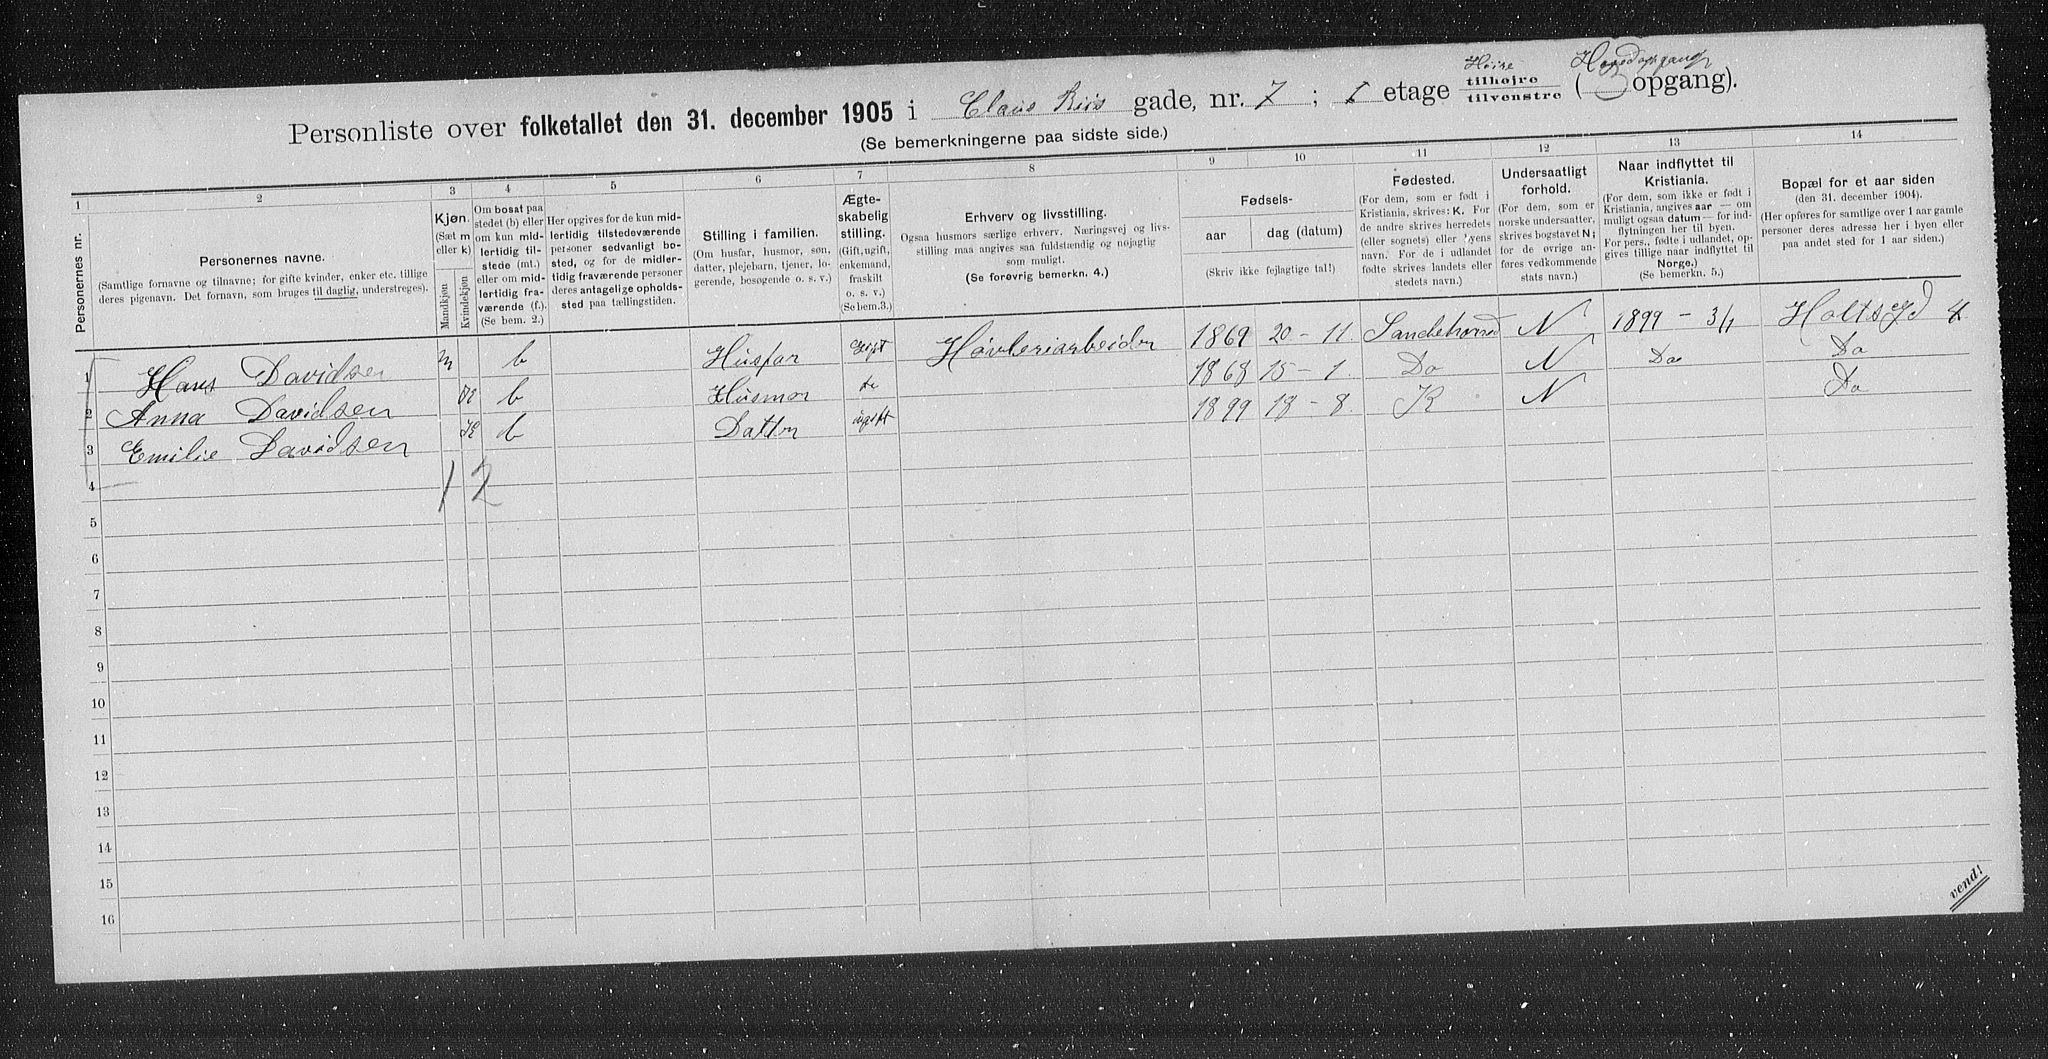 Høire Hovedopgang
Personliste over folketallet den 31. december 1905 i Claus Riis gade, nr. 7 ; I etage tilhøjre tilvenstre ( opgang).
(Se bemerkningerne paa sidste side.)
1 2 3 4 5 6 7 8 9 10 11 12 13 14
Personernes nr.
Personernes navne.
(Samtlige fornavne og tilnavne; for gifte kvinder, enker etc. tillige
deres pigenavn. Det fornavn, som bruges til daglig, understreges).
Kjøn.
(Sæt m
eller k)
Mandkjøn
Kvindekjøn
Om bosat paa
stedet (b) eller
om kun mid-
lertidig til-
stede (mt.)
eller om mid-
lertidig fra-
værende (f.).
(Se bem. 2.)
Her opgives for de kun mid-
lertidig tilstedeværende
personer sedvanligt bo-
sted, og for de midler-
tidig fraværende personer
deres antagelige opholds-
sted paa tællingstiden.
Stilling i familien.
(Om husfar, husmor, søn,
datter, plejebarn, tjener, lo-
gerende, besøgende o. s. v.)
Ægte-
skabelig
stilling.
(Gift, ugift,
enkemand,
fraskilt
o. s. v.)
(Se bem.3.)
Erhverv og livsstilling.
Ogsaa husmors særlige erhverv. Næringsvej og livs-
stilling maa angives saa fuldstændig og nøjagtig
som muligt.
(Se forøvrig bemerkn. 4.)
Fødsels-
aar dag (datum)
(Skriv ikke fejlagtige tal!)
Fødested.
(For dem, som er født i
Kristiania, skrives: K. For
de andre skrives herredets
(eller sognets) eller byens
navn. For de i udlandet
fødte skrives landets eller
stedets navn.)
Undersaatligt
forhold.
(For dem, som er
norske undersaatter,
skrives bogstavet N;
for de øvrige an-
føres vedkommende
stats navn.)
Naar indflyttet til
Kristiania.
(For dem, som ikke er født i
Kristiania, angives aar — om
muligt ogsaa datum — for ind-
flytningen her til byen.
For pers., fødte i udlandet, op-
gives tillige naar indflyttet til
Norge.)
(Se bemerkn. 5.)
Bopæl for et aar siden
(den 31. december 1904).
(Her opføres for samtlige over 1 aar gamle
personer deres adresse her i byen eller
paa andet sted for 1 aar siden.)
1 Hans Davidsen m b Husfar gift Høvleriarbeider 1869 20 - 11 N 1899 - 3/4 Holtsgd 4
2 Anna Davidsen K b Husmor do 1868 15 - 1. Do N Do Do
3 Emilie Davidsen K b Datter ugift 1899 18 - 8. K N Do
4 1 2
5
6
7
8
9
10
11
12
13
14
15
16
vend!